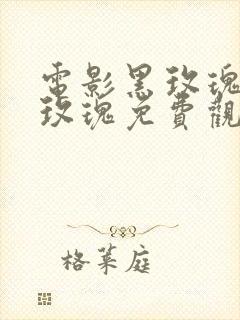 電影黑玫瑰
玫瑰免費觀
格萊庭